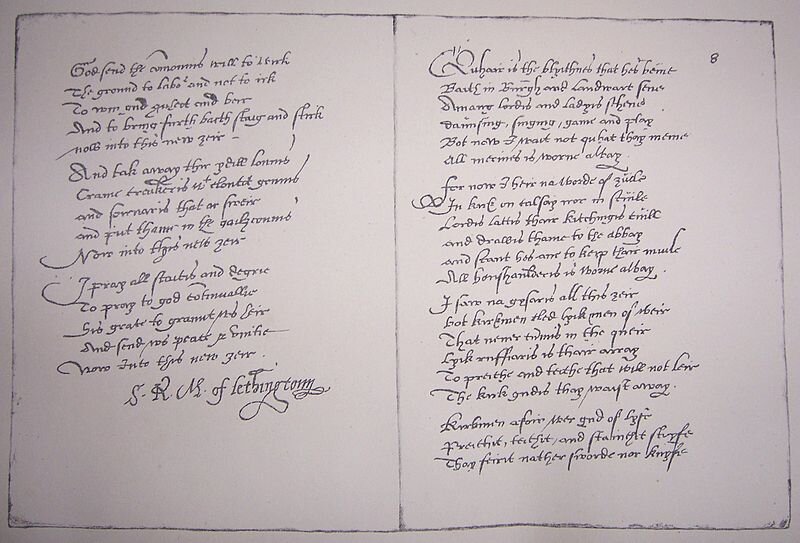 God send the comonnis will to wirk
The ground to labor and not to irk
To win gud quheit and beir
And to bring furth baith staig and stirk
now into this new zeir
And tak away thir ydill lounis
Crame creakeris wt cloutit gounis
and sornaris that ar sweir
and put thame in the gailzeounis
Now into this new zeir
I pray all staitis and degrie
To pray to god continuallie
his grace to graunt ws heir
And send ws peace & vnitie
Now Into this new zeir.
S. R. M. of lethingtoun
8
Quhair is the blythnes that hes beine
Baith in Burgh and Landwart sene
Amang lordis and Ladyis schene
daunsing, singing, game and play
Bot now I wait not quhat thay meine
All merines is worne away.
for now I heir na worde of zuile
In kirk on calsay nor in scuile
Lordis lattis thair kitchingis cuill
and drawis thame to the abbay
and scant hes ane to keip thair muile
All houshaulderis is worne away.
I saw na gysaris all this zeir
bot kirkmen cled lyik men of weir
That never cumis in the queir
Lyik ruffiaris is thair array
To preiche and teiche that will not leir
The kirk gudis thay waist away.
Kirkmen afoir wer gud of lyfe
Preichit, teichit, and stainchit stryfe
Thay feirit nather sworde nor knyfe